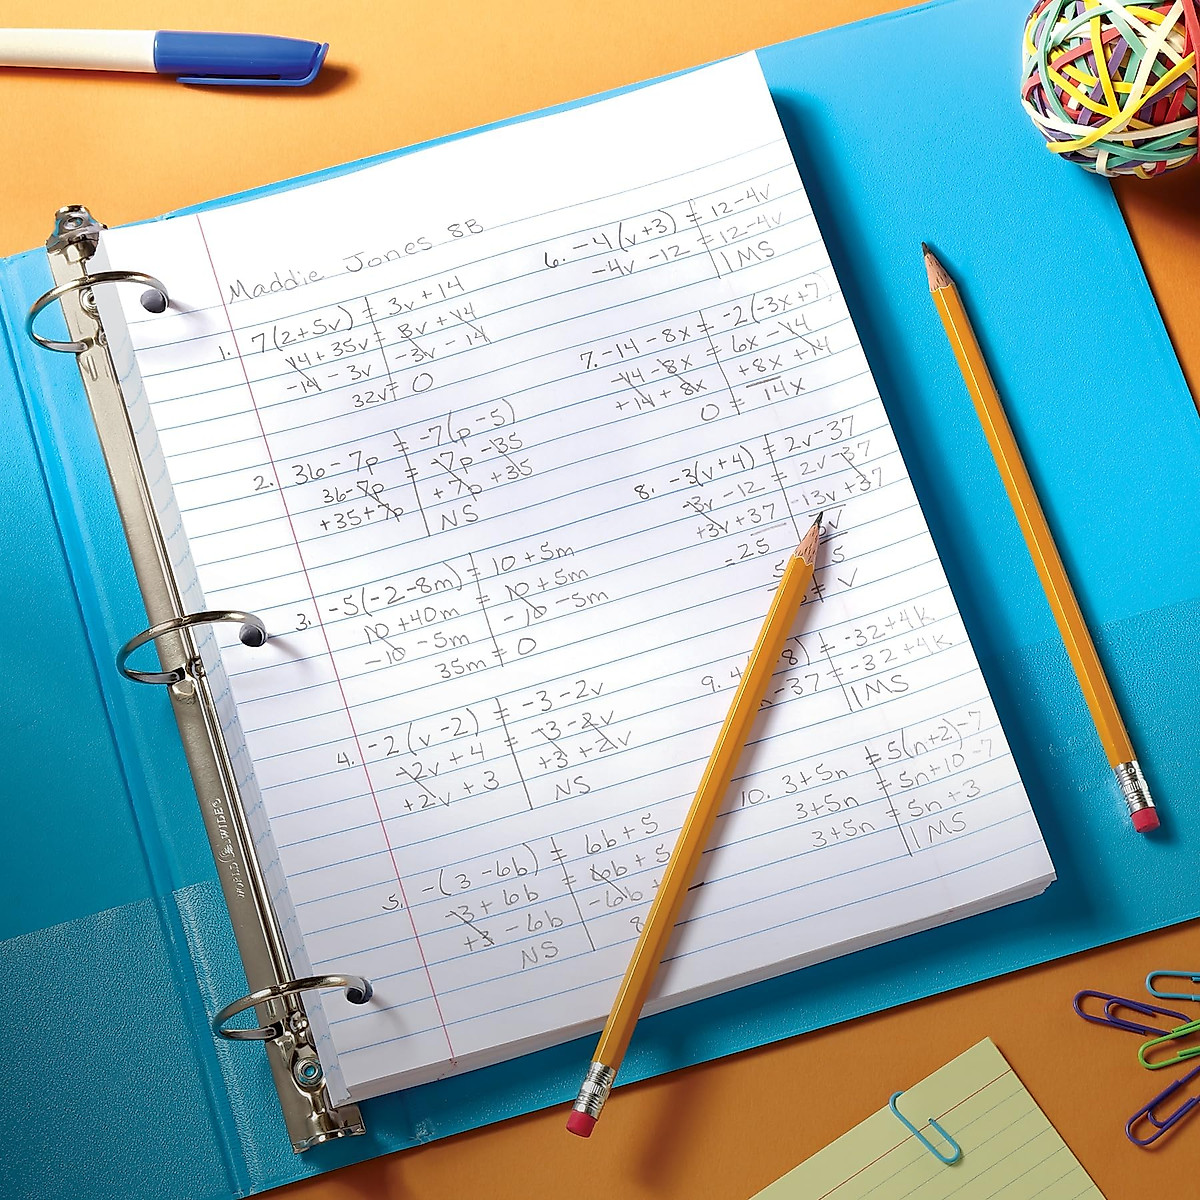 Maddie Jones 8B
1. 7(2+5v) = 3v+14
14+35v = 3v+14
-14 -3v -3v -14
32v = 0
2. 36-7p = -7(p-5)
36-7p = -7p-35
+35+7p +7p+35
NS
3. -5(-2-8m) = 10+5m
10+40m = 10+5m
-10-5m -10-5m
35m = 0
4. -2(v-2) = -3-2v
-2v+4 = -3-2v
+2v+3 +3+2v
NS
5. -(3-6b) = 6b+5
-3+6b = 6b+5
+3-6b -6b+
NS 8
6. -4(v+3) = 12-4v
-4v-12 = 12-4v
1MS
7. -14-8x = -2(-3x+7)
-14-8x = 6x-14
+14+8x +8x+14
0 = 14x
8. -3(v+4) = 2v-37
-3v-12 = 2v-37
+3v+37 -13v+37
=25
5 5
= v
9. 4( -8) = -32+4k
-37 = -32+4k
1MS
10. 3+5n = 5(n+2)-7
3+5n = 5n+10-7
3+5n = 5n+3
1MS
WORLD WIDE